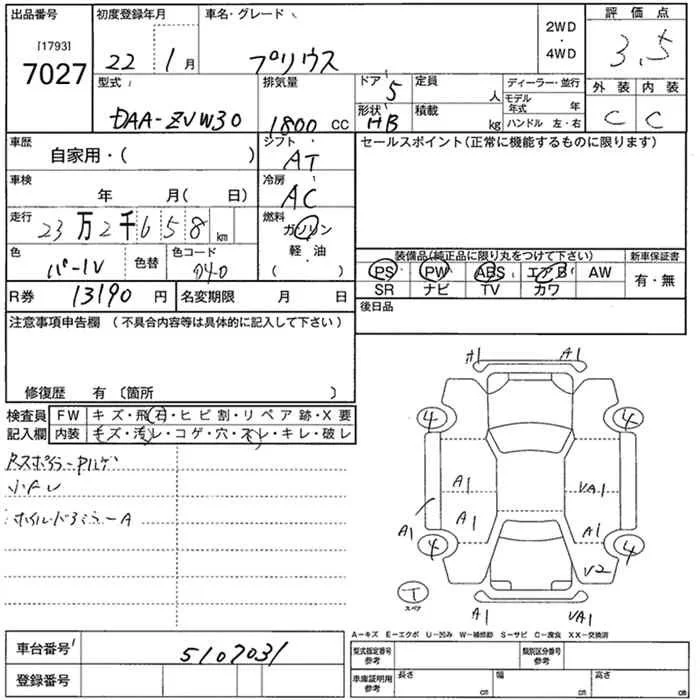 出品番号 初度登録年月 車名・グレード 2WD・4WD 評価点
[1793] 7027 22年 1月 プリウス 3.5
型式 DAA-ZVW30 排気量 1800 cc ドア 5 定員 人 ディーラー・並行 外装 内装
形状 HB 積載 kg モデル年式 年 C C
ハンドル 左・右
車歴 自家用・( ) シフト AT セールスポイント(正常に機能するものに限ります)
車検 年 月( 日) 冷房 AC
走行 23万2千658 km 燃料 ガソリン
軽・油
( )
色 パール 色替 色コード 040 装備品(純正品に限り丸をつけて下さい) 新車保証書
PS PW ABS エアB AW 有・無
SR ナビ TV カワ
R券 13190 円 名変期限 月 日 後日品
注意事項申告欄(不具合内容等は具体的に記入して下さい)
修復歴 有〔箇所 〕
検査員 FW キズ・飛石・ヒビ割・リペア跡・X要
記入欄 内装 キズ・汚レ・コゲ・穴・スレ・キレ・破レ
小キレ
ホイル・ドアミラーA
A1 A1
4 4
A1 VA1
A1 A1 A1
4 4
V2
T
スペア
A1 VA1
A-キズ E-エクボ U-凹み W-補修跡 S-サビ C-腐食 XX-交換済
車台番号 5107031 型式指定番号 参考 類別区分番号 参考
登録番号 車庫証明用 参考 長さ cm 幅 cm 高さ cm